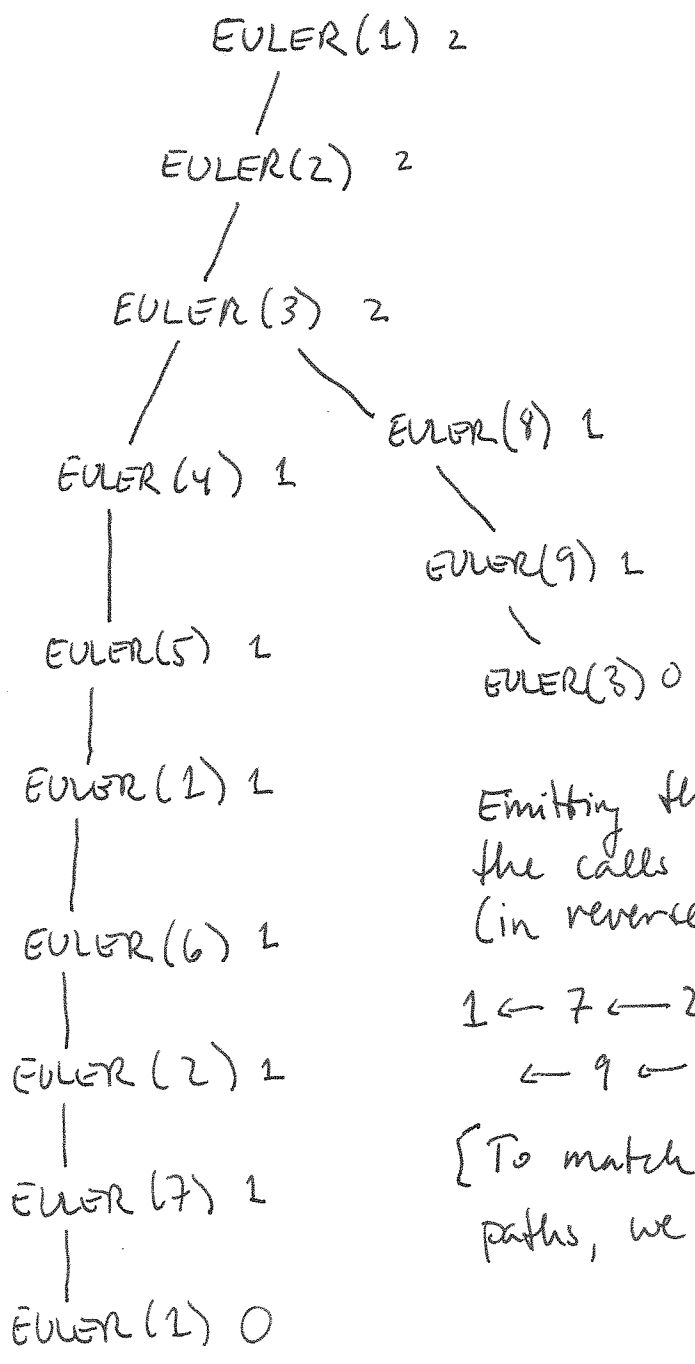 EULER(1) 2
EULER(2) 2
EULER(3) 2
EULER(4) 1
EULER(8) 1
EULER(5) 1
EULER(9) 1
EULER(1) 1
EULER(3) 0
EULER(6) 1
EULER(2) 1
EULER(7) 1
EULER(1) 0
Emitting
the calls
(in
1 ← 7 ← 2
← 9 ←
[To match
paths, we